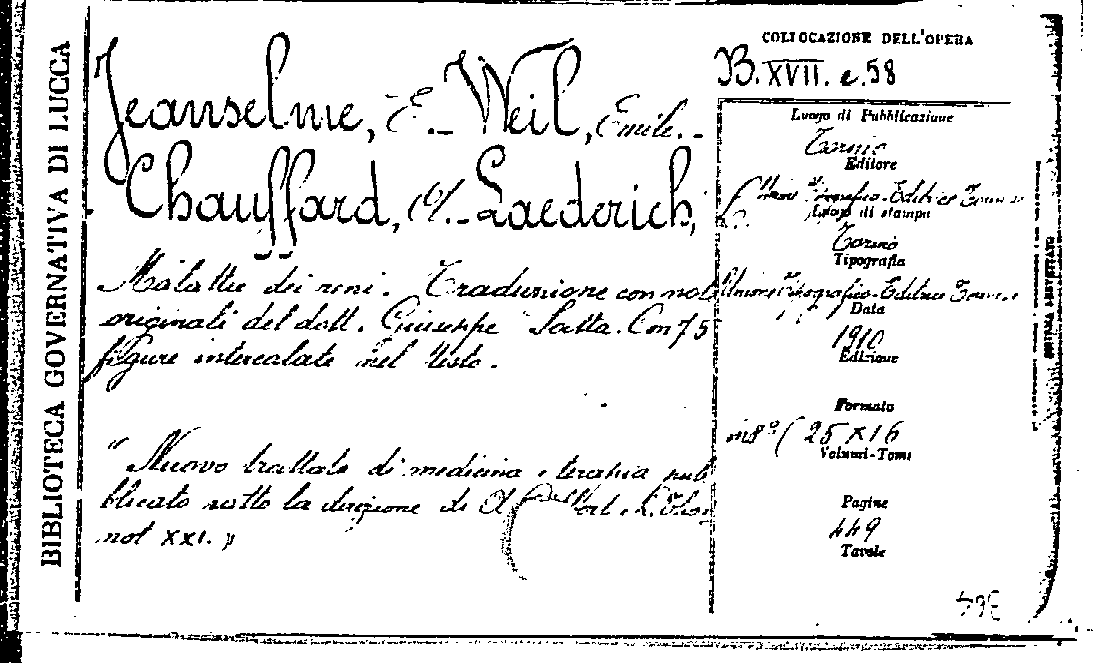 BIBLIOTECA GOVERNATIVA DI LUCCA
Jeanselme, E. - Weil, Emile. -
Chauffard, A. - Laederich,
Malattie dei reni. Traduzione con note
originali del dott. Giuseppe Satta. Con 75
figure intercalate nel testo.
" Nuovo trattato di medicina e terapia pub
blicato sotto la direzione di
vol XXI. "
COLLOCAZIONE DELL'OPERA
B. XVII. e. 58
Luogo di Pubblicazione
Torino
Editore
Unione Tipografico-Editrice Torinese
Luogo di stampa
Torino
Tipografia
Unione Tipografico-Editrice Torinese
Data
1910
Edizione
Formato
in 8° ( 25 x 16
Volumi-Tomi
Pagine
449
Tavole
364